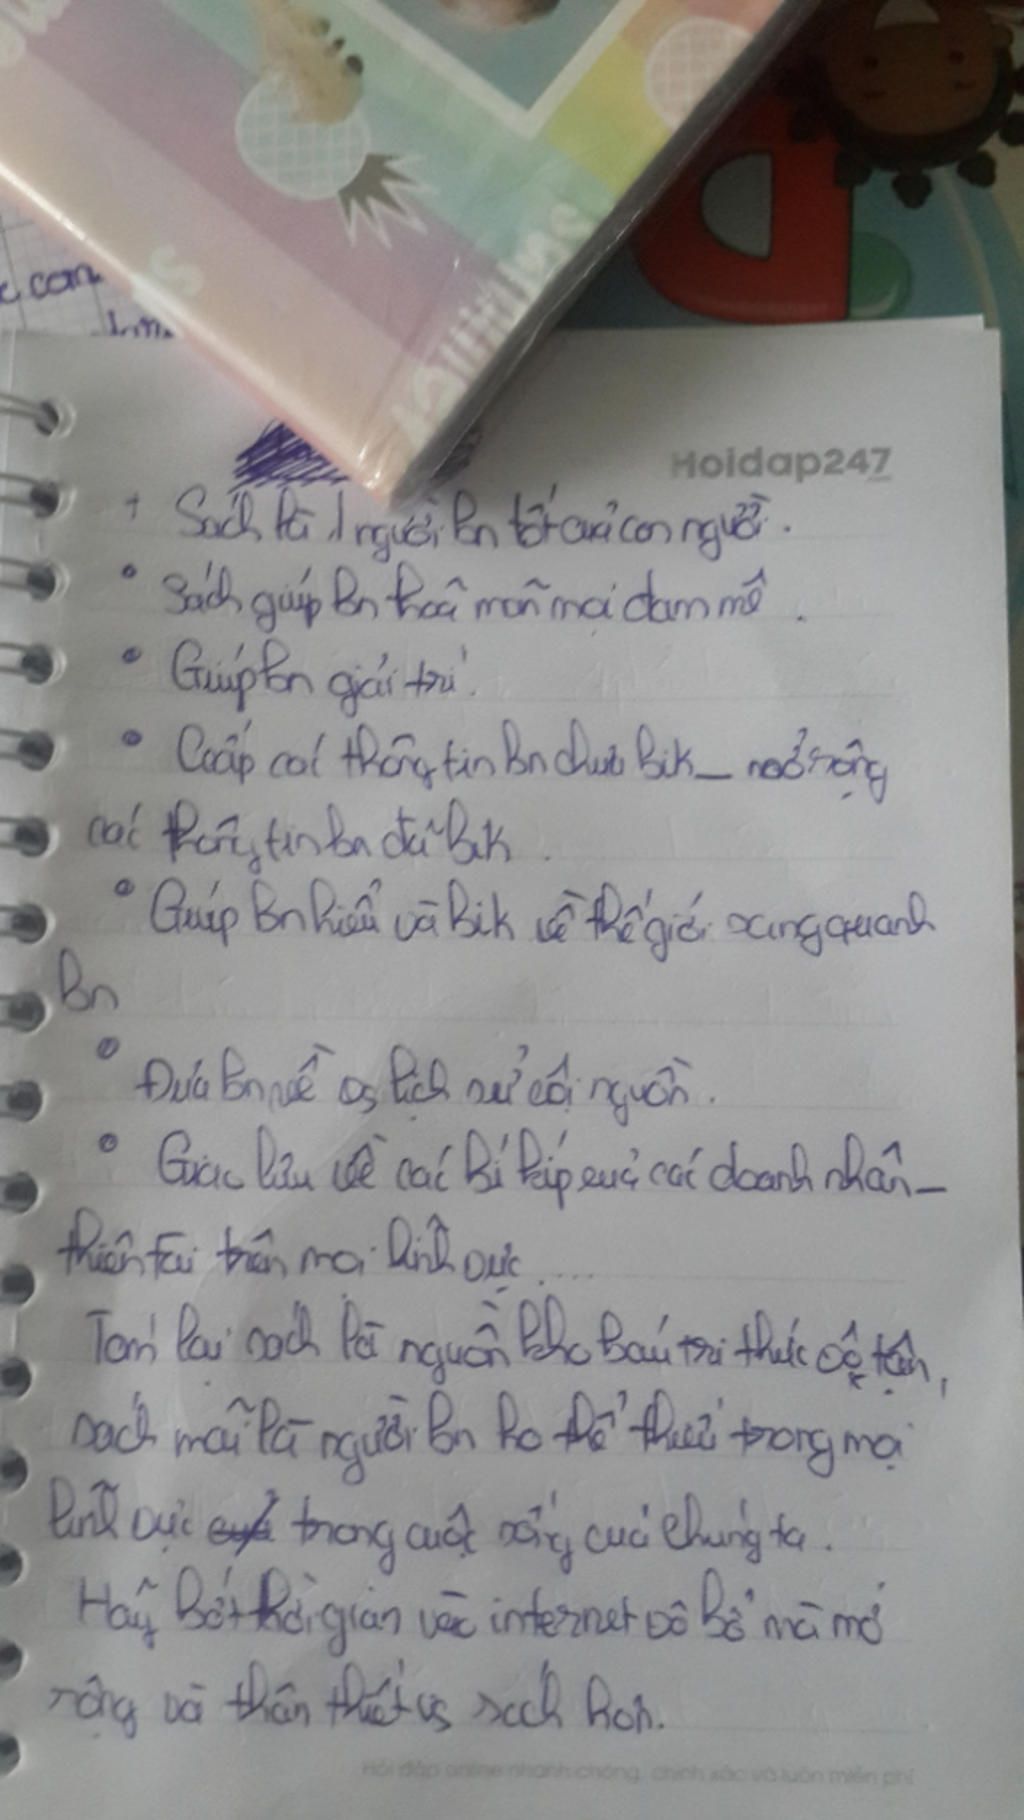 c con
Hoidap247
+ Sách là 1 người bn tốt của con người.
• Sách giúp bn thoã mãn mọi đam mê.
• Giúp bn giải trí.
• Ccấp các thông tin bn chưa bik_ mở rộng
các thông tin bn đã bik.
• Giúp bn hiểu và bik về thế giới xung quanh
bn
• Đưa bn về vs lịch sử cội nguồn.
• Giao lưu về các bí kíp của các doanh nhân_
thiên tài trên mọi lĩnh vực....
Tóm lại sách là nguồn kho báu tri thức vô tận,
sách mãi là người bn ko thể thiếu trong mọi
lĩnh vực trong cuộc sống của chúng ta.
Hãy bớt thời gian vào internet vô bổ mà mở
rộng và thân thiết vs sách hơn.
Hỏi đáp online nhanh chóng, chính xác và luôn miễn phí